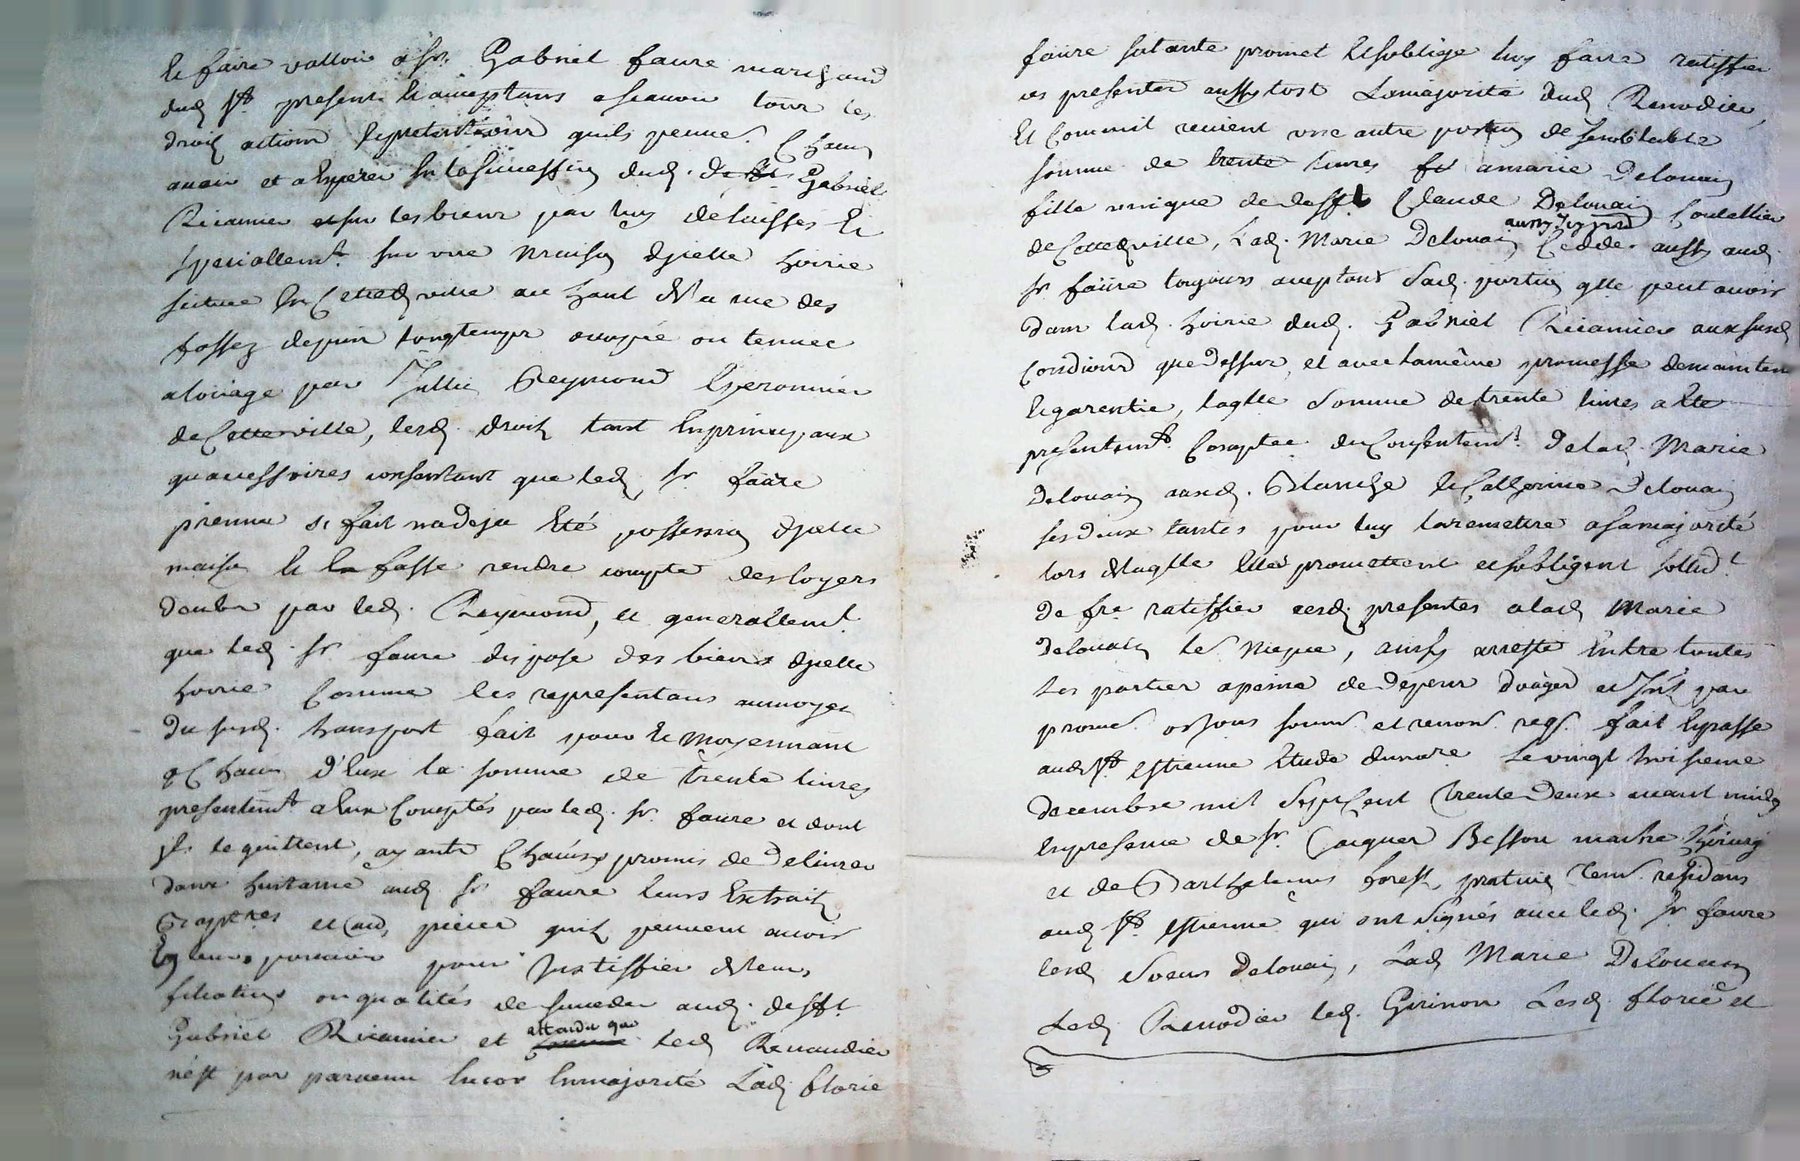 et faire valloir a sr. Gabriel faure marchand
dud St. present et acceptant a scavoir tous les
droits actions et pretentions quils peuvent Chacun
avoir et a esperer sur la succession dud. defft Gabriel
Ricamier et sur les biens par luy délaissés et
speciallemt. sur une maison d'jcelle hoirie
scituée en Cetted ville au haut de la rue des
fossez depuis longtemps occupée ou tenuee
a loüage par Jullien Reymond Eperonnier
de Cetteville, lesd. droits tant en principaux
quaccessoires consentant que led. sr. faure
prenne si fait na deja eté possession d'jcelle
maison et se fasse rendre compte des loyers
deubs par led. Reymond, et generallemt.
que led. sr. faure dispose des biens d'jcelle
hoirie Comme les representans au moyen
du susd. transport fait pour et moyennant
a Chacun d'Eux la somme de trente livres
presentemt. a Eux Comptés par led. sr. faure et dont
jls le quittent, ayants Chacuns promis de delivrer
dans huitaine aud. sr. faure leurs Extraits
Baptres et aud, pieces quils peuvent avoir
En leurs pouvoir pour justiffier de leurs
filiations ou qualités de succeder aud. defft.
Gabriel Ricamier et attendu que led. Renaudier
nest pas parvenu Encor En majorité Lad. florie
faure sa tante promet et soblige luy faire ratiffier
ces presentes aussytost La majorité dud. Renodier,
Et Comme il revient une autre portion de semblable
somme de trente livres a marie Delouain
fille unique de defft Claude Delouain Coutellier
de Cetted ville, Lad. Marie Delouain aussy jcy presd Cedde aussy aud.
sr faure toujours acceptant Sad. portion qlle peut avoir
dans lad. hoirie dud. Gabriel Ricamier aux susd.
Condions que dessus, et avec la même promesse de maintenue
et garentie, laqlle Somme de trente livres a Eté
presentemt. Comptée du Consentemt. de lad. Marie
Delouain auxd. Blanche et Catherine Delouain
ses deux tantes pour luy la remettre a sa majorité
lors de laqlle Elles promettent et sobligent sollidt.
de fre ratiffier cesd. presentes a lad. Marie
Delouain le Niepce, ainsy arresté Entre toutes
les parties a peine de depens domages et Jnts par
promes. obons soums. et renons. reqs. fait et passé
aud St. estienne etude du nore. Le vingt troisieme
decembre mil Sept Cent trente Deux avant midy
En presence de sr. Jacques Besson maitre Chirurgn
et de Barthelemy forest, praticien tems. residans
aud St. estienne qui ont signés avec led. sr. faure
lesd. Soeurs delouain, Lad. Marie Delouain
Led. Renodier led. Girinon Lesd. florie et